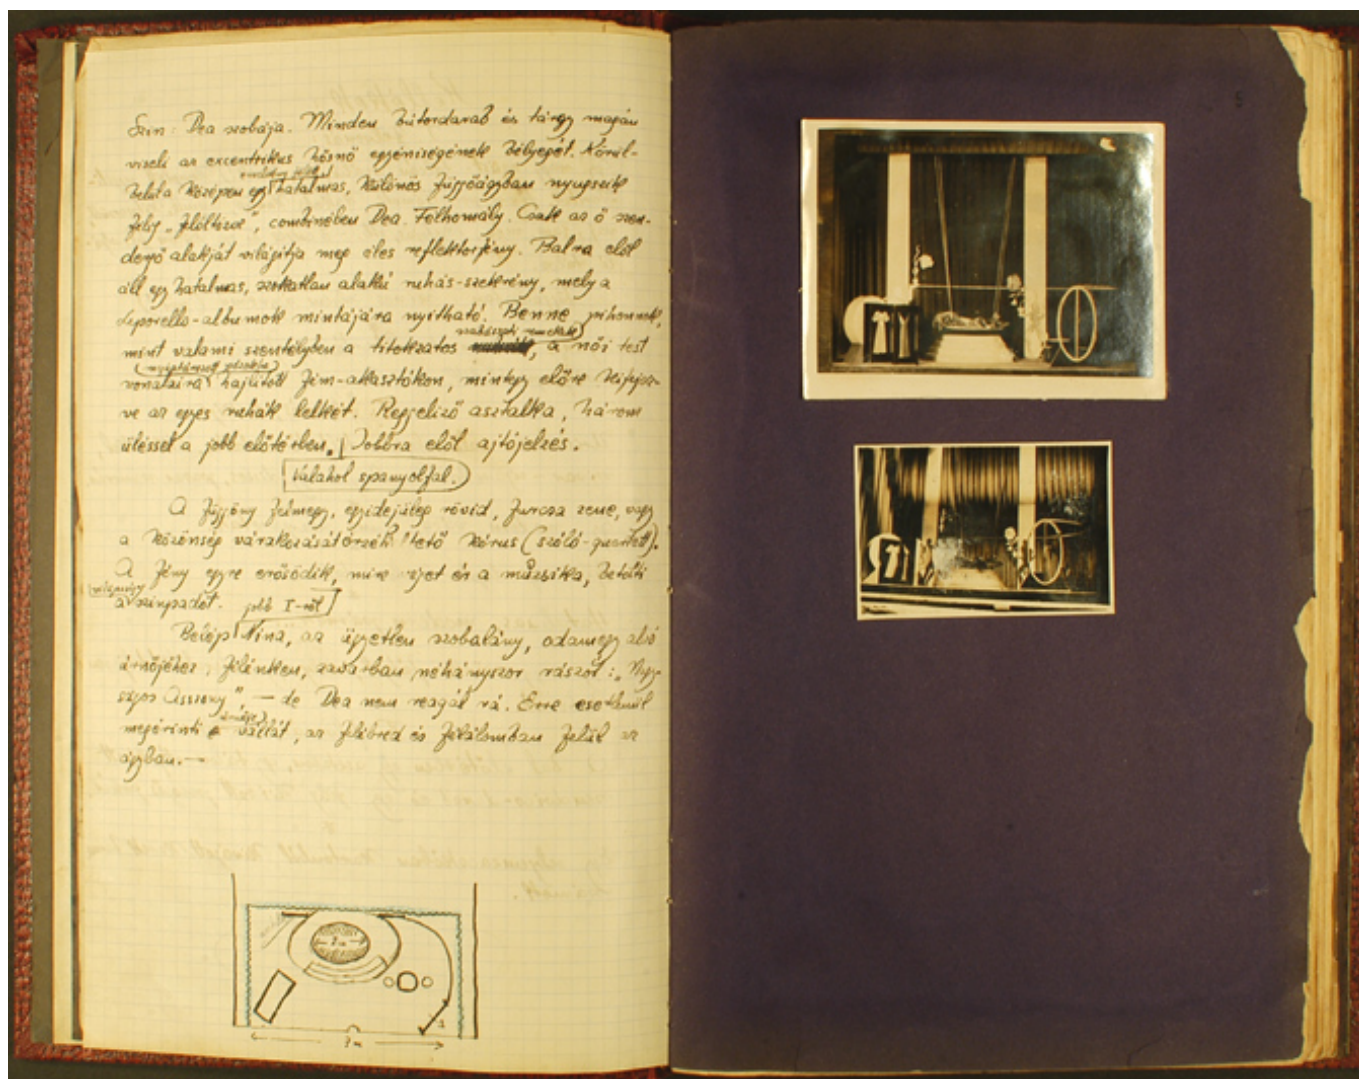 Szin: Dea szobája. Minden bútordarab és tárgy magán
viseli az excentrikus hősnő egyéniségének bélyegét. Körül-
belül a középen egy hatalmas, különös függőágyban nyugszik
félig „felöltözve”, combinében Dea. Félhomály. Csak az ő szen-
dergő alakját világítja meg éles reflektorfény. Balra elől
áll egy hatalmas, szokatlan alakú ruhás-szekrény, mely a
Leporello-albumok mintájára nyitható. Benne pihennek,
mint valami szentélyben a titokzatos , a női test
vonalaira hajlított fém-akasztókon, mintegy előre kifejez-
ve az egyes ruhák lelkét. Reggeliző asztalka, három
üléssel a jobb előtérben. Jobbra elől ajtójelzés.
Valahol spanyolfal.
A függöny felmegy, egyidejüleg rövid, furcsa zene, vagy
a közönség várakozását érzékeltető kórus (szóló-quartett).
A fény egyre erősödik, mire véget ér a muzsika, betölti
a szinpadot. jobb I-ről
Belép Nina, az ügyetlen szobalány, odamegy alvó
úrnőjéhez, félénken, zavarban néhányszor rászól: „Nagy-
ságos Asszony”, — de Dea nem reagál rá. Erre esetlenül
megérinti a vállát, az felébred és félálomban felül az
ágyban. —
2 m
1
7 m